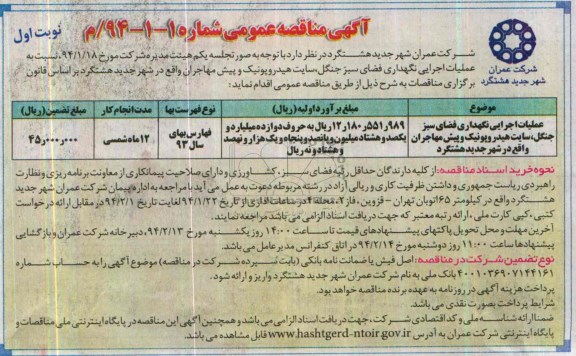 آگهی مناقصه عمومی شماره ۱-۱-۹۴/م
نوبت اول
شرکت عمران
شهر جدید هشتگرد
شرکت عمران شهر جدید هشتگرد در نظر دارد با توجه به صورتجلسه یکم هیئت مدیره شرکت مورخ ۹۴/۱/۱۸، نسبت به
عملیات اجرایی نگهداری فضای سبز جنگل، سایت هیدروپونیک و پیش مهاجران واقع در شهر جدید هشتگرد بر اساس قانون
برگزاری مناقصات به شرح ذیل از طریق مناقصه عمومی اقدام نماید:
موضوع
مبلغ برآورد اولیه (ریال)
نوع فهرست بها
مدت انجام کار
مبلغ تضمین (ریال)
عملیات اجرایی نگهداری فضای سبز
جنگل، سایت هیدروپونیک و پیش مهاجران
واقع در شهر جدید هشتگرد
۱۲٫۱۸۰٫۵۵۱٫۹۸۹ ریال به حروف دوازده میلیارد و
یکصد و هشتاد میلیون و پانصد و پنجاه و یک هزار و نهصد
و هشتاد و نه ریال
فهارس بهای
سال ۹۳
۱۲ ماه شمسی
۴۵۰٫۰۰۰٫۰۰۰
نحوه خرید اسناد مناقصه: از کلیه دارندگان حداقل رتبه فضای سبز، کشاورزی و دارای صلاحیت پیمانکاری از معاونت برنامه ریزی و نظارت
راهبردی ریاست جمهوری و داشتن ظرفیت کاری و ریالی آزاد در رشته مربوطه دعوت به عمل می آید با مراجعه به اداره پیمان شرکت عمران شهر جدید
هشتگرد واقع در کیلومتر ۶۵ اتوبان تهران - قزوین، فاز ۲، محله ۴ در ساعات اداری از تاریخ ۹۴/۱/۲۳ لغایت تاریخ ۹۴/۲/۱ در مقابل ارائه درخواست
کتبی، کپی کارت ملی، ارائه رتبه معتبر که جهت دریافت اسناد الزامی می باشد مراجعه نمایند.
آخرین مهلت و محل تحویل پاکتهای پیشنهادهای قیمت تا ساعت ۱۴:۰۰ روز یکشنبه مورخ ۹۴/۲/۱۳، دبیرخانه شرکت عمران و بازگشایی
پیشنهادها ساعت ۱۱:۰۰ روز دوشنبه مورخ ۹۴/۲/۱۴ در اتاق کنفرانس مدیرعامل می باشد.
نوع تضمین شرکت در مناقصه: اصل فیش یا ضمانت نامه بانکی (بابت سپرده شرکت در مناقصه) موضوع آگهی را به حساب شماره
۴۰۰۱۰۳۶۹۰۷۱۴۴۱۶۱ بانک ملی به نام شرکت عمران شهر جدید هشتگرد واریز و ارائه شود.
پرداخت هزینه آگهی در روزنامه به عهده برنده مناقصه خواهد بود.
شرایط پرداخت بصورت نقدی می باشد.
ضمنا ارائه شناسه ملی و کد اقتصادی شرکت، جهت دریافت اسناد الزامی می باشد و همچنین آگهی این مناقصه در پایگاه اینترنتی ملی مناقصات و
پایگاه اینترنتی شرکت عمران به آدرس www.hashtgerd-ntoir.gov.ir قابل مشاهده می باشد.